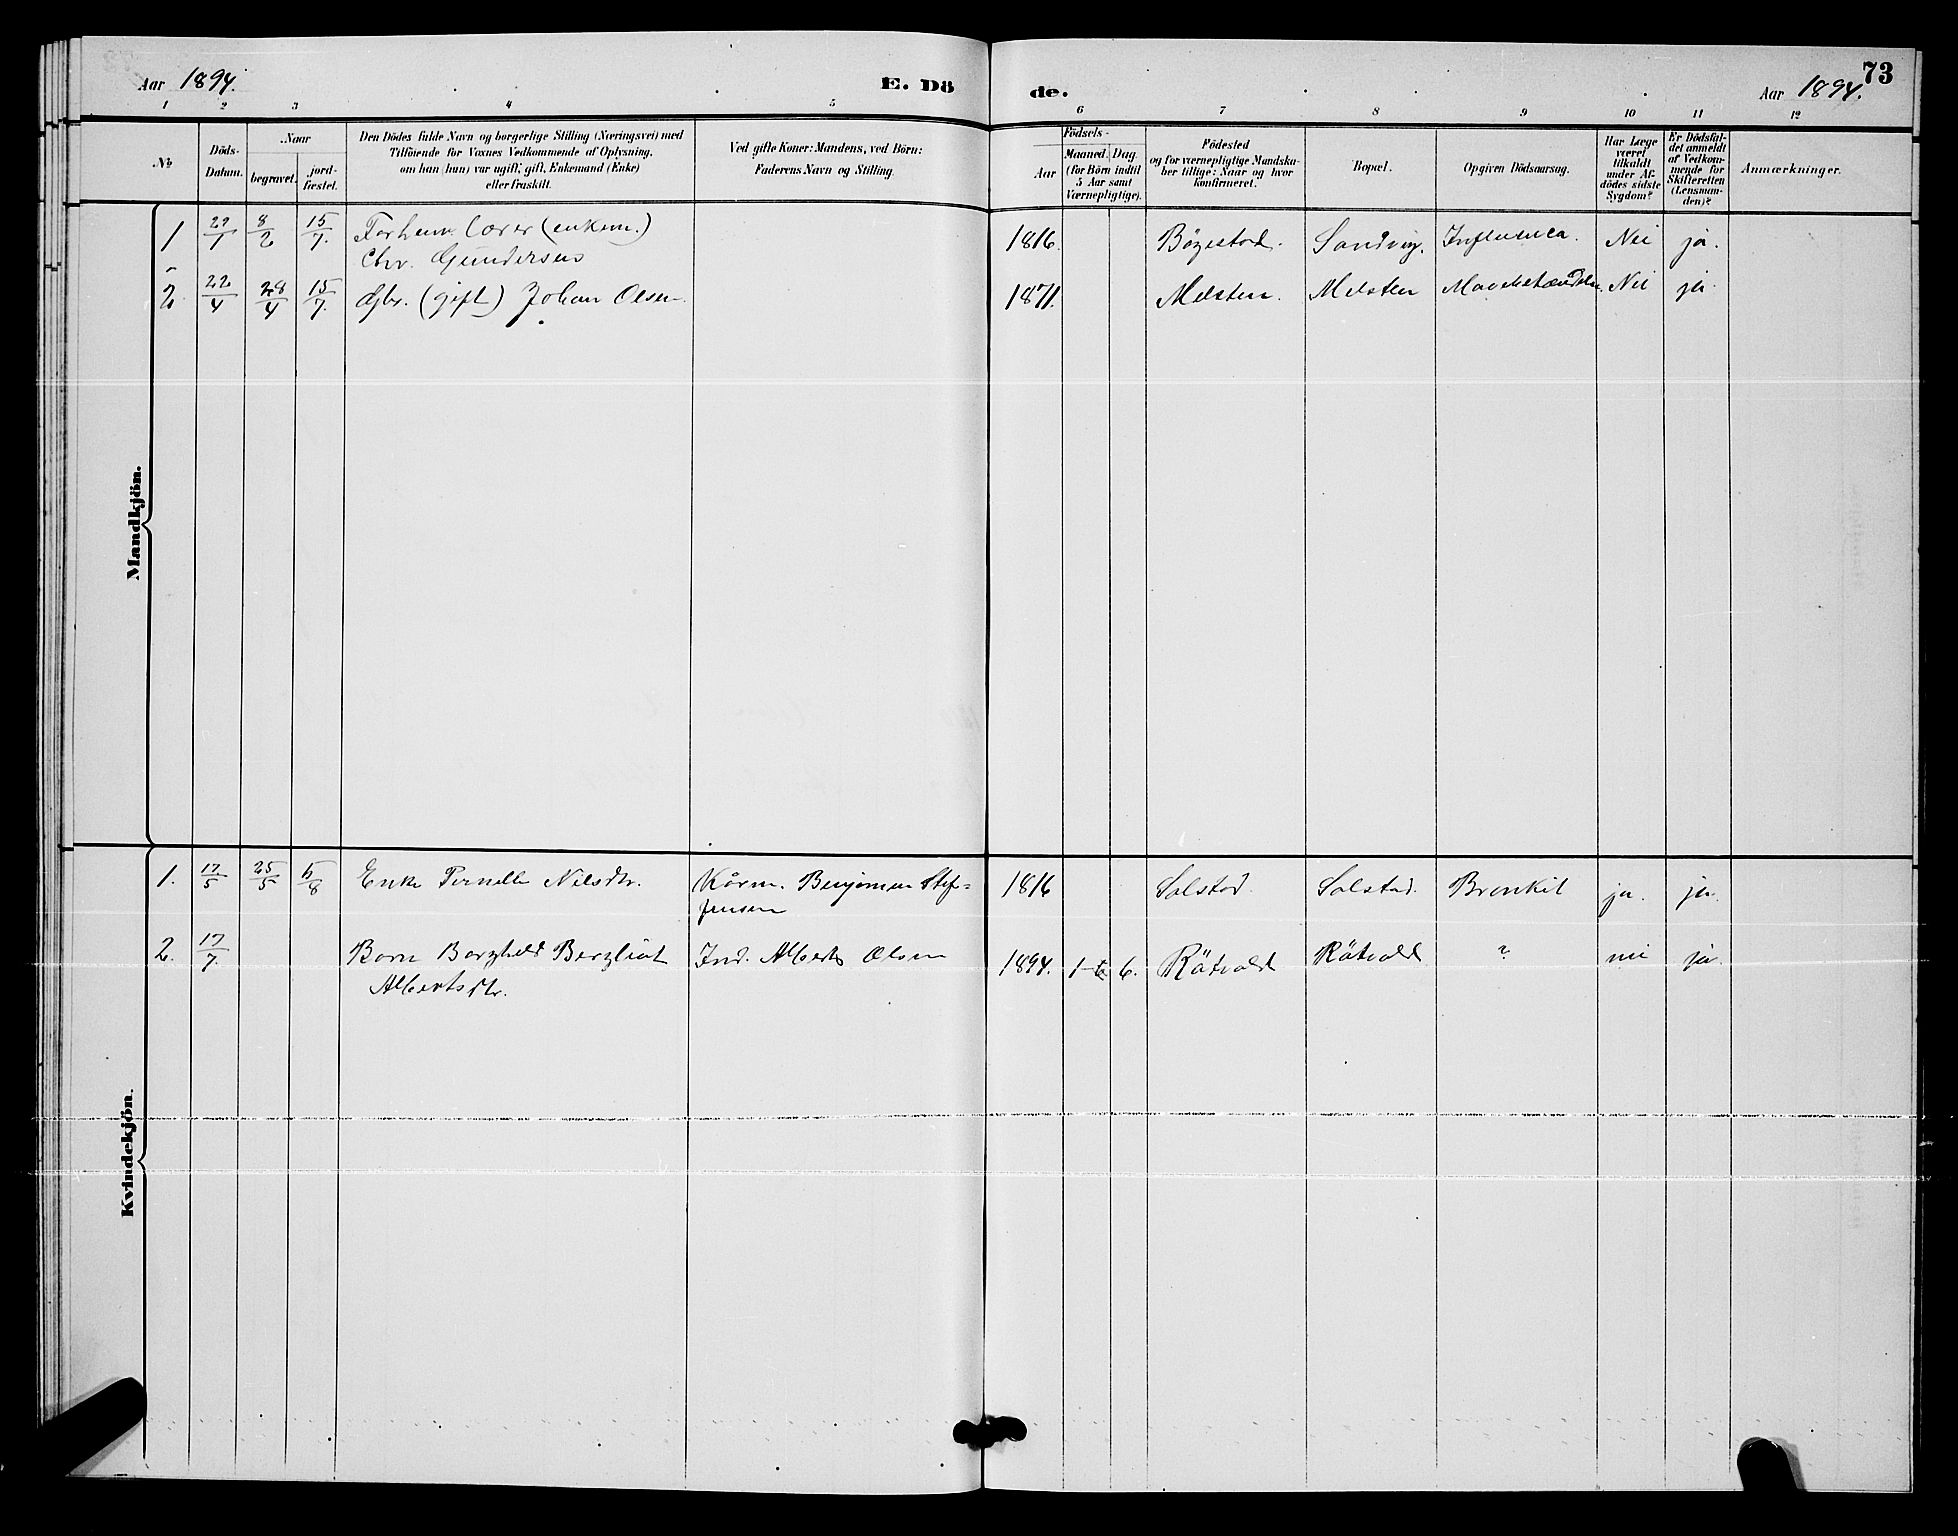 Aar 1894.
E. Dö
de.
Aar 1894.
73
1 2 3 4 5 6 7 8 9 10 11 12
No
Döds-
Datum.
Naar
begravet.
jord-
fæstet.
Den Dödes fulde Navn og borgerlige Stilling (Næringsvei) med
Tilföiende for Voxnes Vedkommende af Oplysning,
om han (hun) var ugift, gift, Enkemand (Enke)
eller fraskilt.
Ved gifte Koner: Mandens, ved Börn:
Faderens Navn og Stilling.
Födsels-
Aar
Maaned. Dag.
(for Börn indtil
5 Aar samt
Værnepligtige).
Födested
og for værnepligtige Mandska-
ber tillige: Naar og hvor
konfirmeret.
Bopæl.
Opgiven Dödsaarsag.
Har Læge
været
tilkaldt
under Af-
dödes sidste
Sygdom?
Er Dödsfal-
det anmeldt
af Vedkom-
mende for
Skifteretten
(Lensman-
den)?
Anmærkninger.
Mandkjön.
1 22/1 8/2 15/7. Forhenv. Lærer (enkem.) 1816. Bögestad. Sandvig. Influenca. Nei ja.
Chr. Gundersen
2 22/4 28/4 15/7. Gbr. (gift) Johan Olsen. 1871. Melsten. Melsten Nei ja.
Kvindekjön.
1. 17/5 25/5 5/8 Enke Pernelle Nilsdtr. Kårm. Benjamen Stef= 1816 Solstad. Solstad. Bronkit ja. ja.
fensen
2. 17/7. Barn Borghild Bergliot Ind. Alberts Olsen 1894. 6. Råtvold Råtvold ? nei ja.
Albertsdtr.